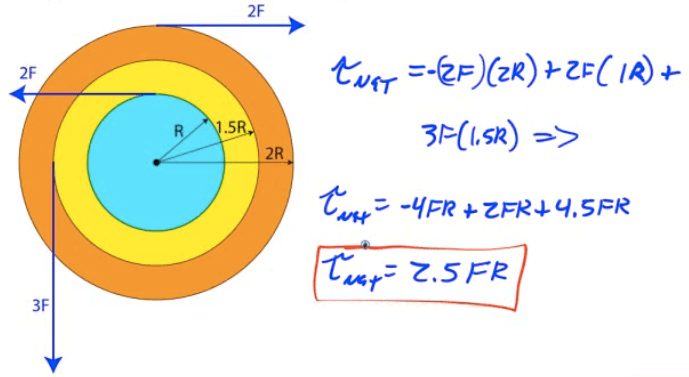 2F
2F
R
1.5R
2R
3F
τ_NET = -(2F)(2R) + 2F(1R) +
3F(1.5R) =>
τ_net = -4FR + 2FR + 4.5FR
τ_net = 2.5FR